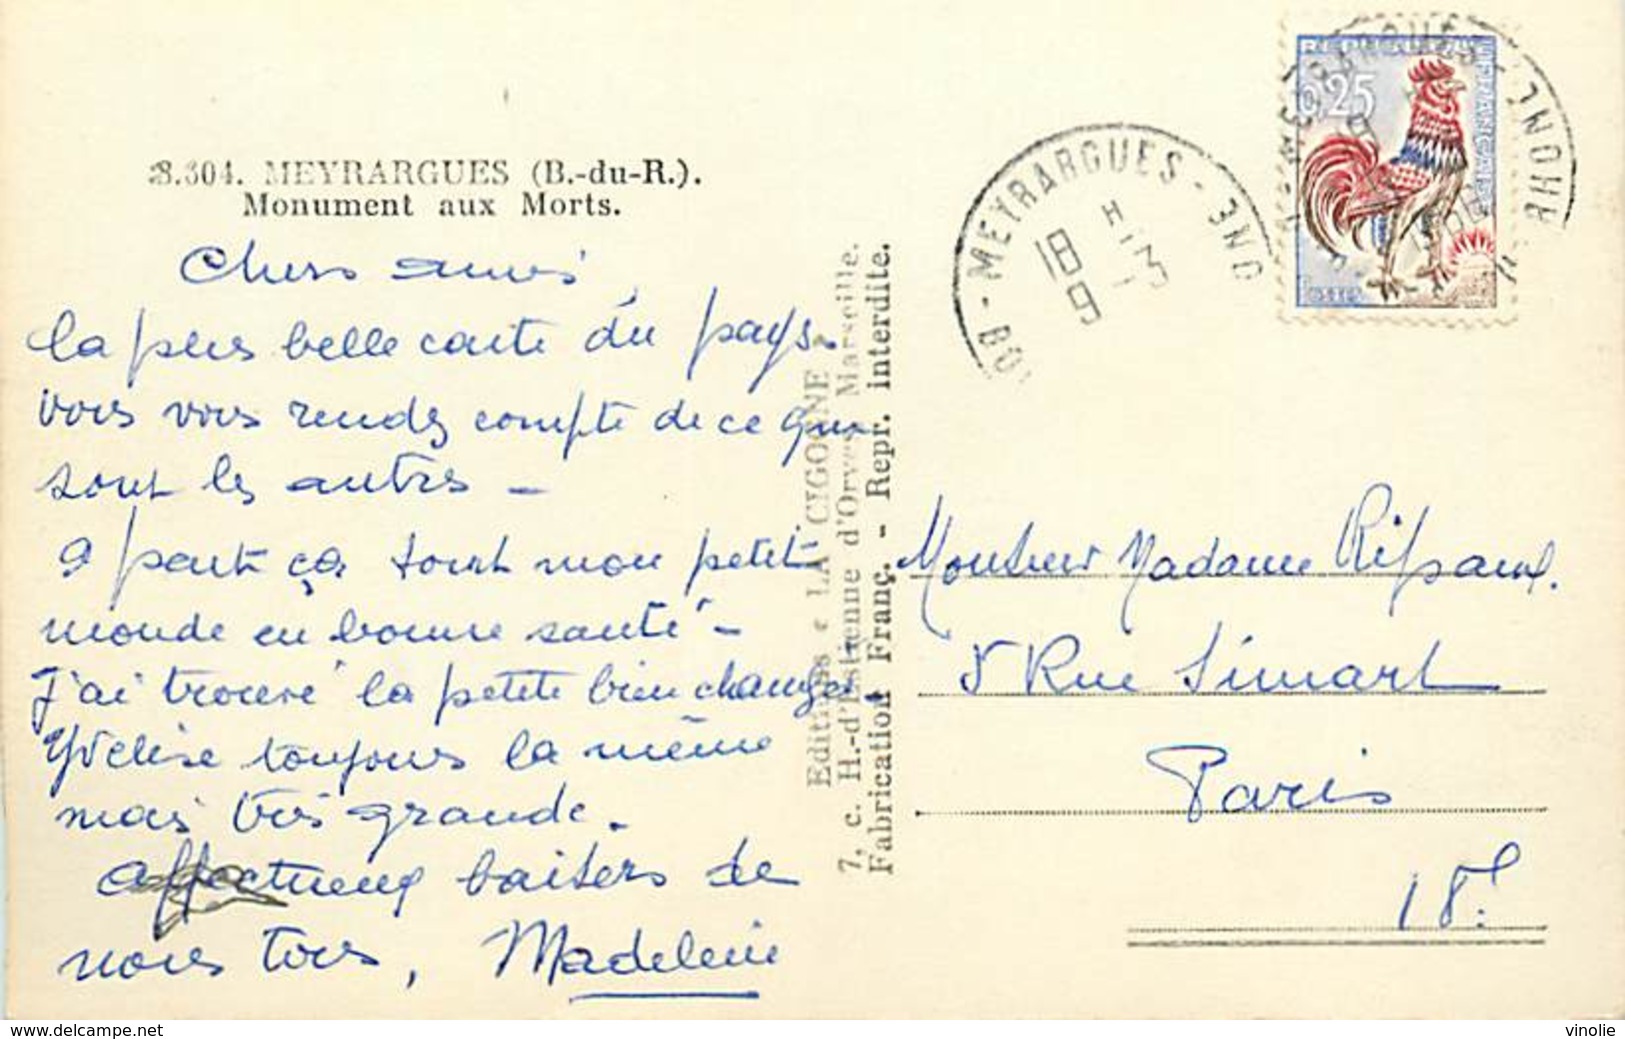 S.304. MEYRARGUES (B.-du-R.).
Monument aux Morts.
Chers amis
la plus belle carte du pays.
vous vous rendez compte de ce que
sont les autres -
à part ça tout mon petit
monde en bonne santé -
J'ai trouvé la petite bien changée
toujours la même
mais très grande.
Affectueux baisers de
nous tous, Madeleine
Editions « LA CIGOGNE »
7, c. H.-d'Estienne d'Orves, Marseille.
Fabrication Franç. - Repr. interdite.
MEYRARGUES - 
18 H
9 - 3
REPUBLIQUE FRANÇAISE
0,25
POSTES
RHONE
Monsieur Madame Ripaux.
5 Rue Simart
Paris
18e
www.delcampe.net
vinolie